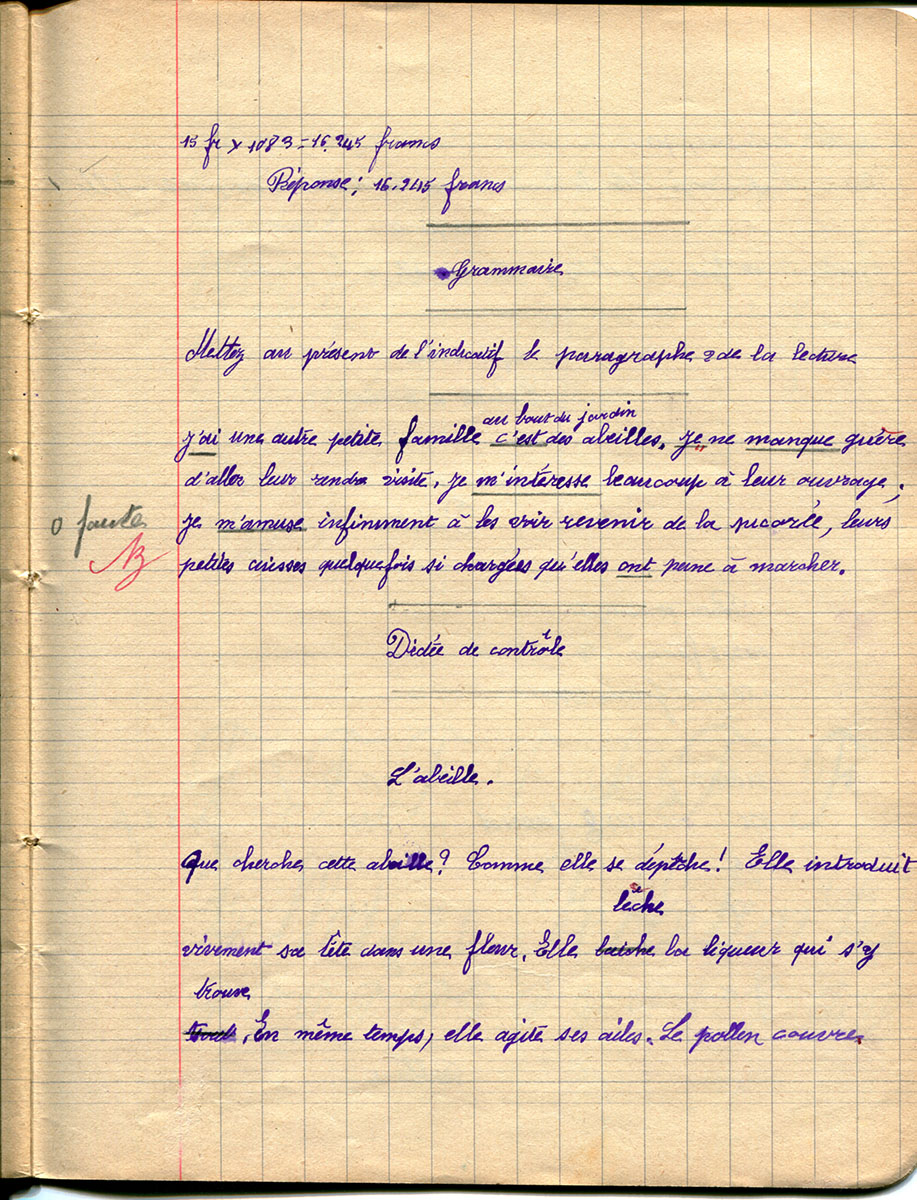 15 fr x 1083 = 16.245 francs
Réponse : 16.245 francs
Grammaire
Mettez au présent de l'indicatif le paragraphe 2 de la lecture
au bout du jardin
J'ai une autre petite famille c'est des abeilles. Je ne manque guère
d'aller leur rendre visite. Je m'intéresse beaucoup à leur ouvrage.
0 faute
Je m'amuse infiniment à les voir revenir de la picorée, leurs
petites cuisses quelquefois si chargées qu'elles ont peine à marcher.
Dictée de contrôle
L'abeille.
Que cherche cette abeille ? Comme elle se dépêche ! Elle introduit
lèche
vivement sa tête dans une fleur. Elle la liqueur qui s'y
trouve
. En même temps, elle agite ses ailes. Le pollen couvre